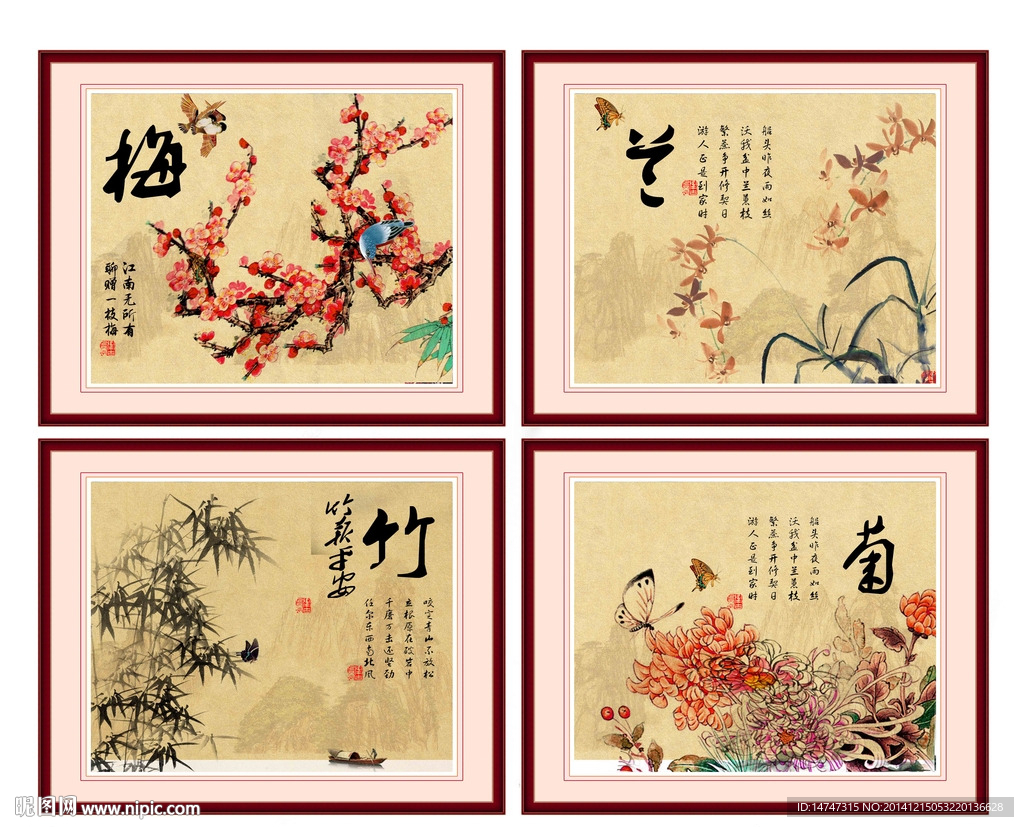 梅
江南无所有
聊赠一枝梅
兰
船头昨夜雨如丝
沃我盆中兰蕙枝
繁蕊争开修禊日
游人正是到家时
竹
竹报平安
咬定青山不放松
立根原在破岩中
千磨万击还坚劲
任尔东西南北风
菊
船头昨夜雨如丝
沃我盆中兰蕙枝
繁蕊争开修禊日
游人正是到家时
昵图网 www.nipic.com
ID:14747315 NO:20141215053220136628